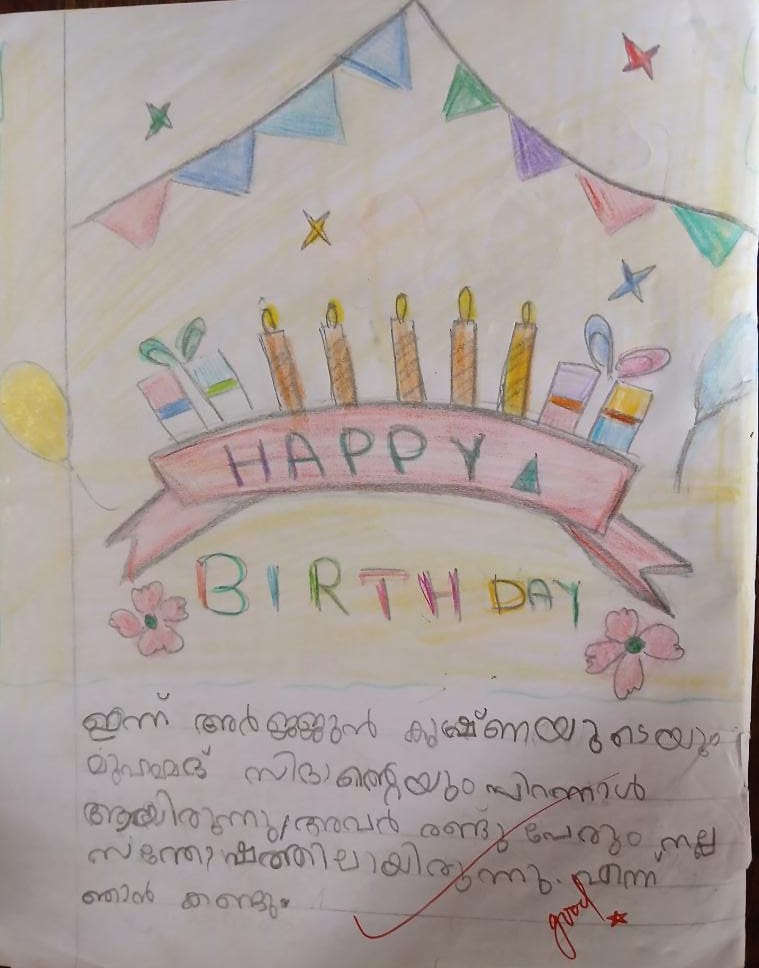 HAPPY
BIRTHDAY
ഇന്ന് അർജ്ജുൻ കൃഷ്ണയുടെയും
മുഹമ്മദ് സിദാന്റെയും പിറന്നാൾ
ആയിരുന്നു, അവർ രണ്ടു പേരും നല്ല
സന്തോഷത്തിലായിരുന്നു. എന്ന്
ഞാൻ കണ്ടും.
good